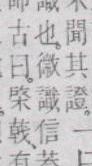 聞其證。一
識也。徵識信
古曰。棨戟、有